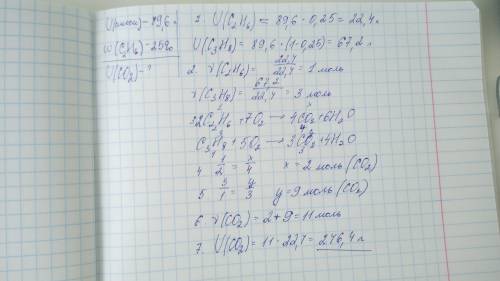 U(смеси) - 89,6 л
W(C2H6) - 25%
U(CO2) - ?
1. U(C2H6) = 89,6 · 0,25 = 22,4 л
U(C3H8) = 89,6 · (1-0,25) = 67,2 л
2. γ(C2H6) = 22,4/22,4 = 1 моль
γ(C3H8) = 67,2/22,4 = 3 моль
3 2C2H6 + 7O2 → 4CO2 + 6H2O
C3H8 + 5O2 → 3CO2 + 4H2O
4 1/2 = x/4 x = 2 моль (CO2)
5 3/1 = y/3 y = 9 моль (CO2)
6 γ(CO2) = 2 + 9 = 11 моль
7. U(CO2) = 11 · 22,4 = 246,4 л